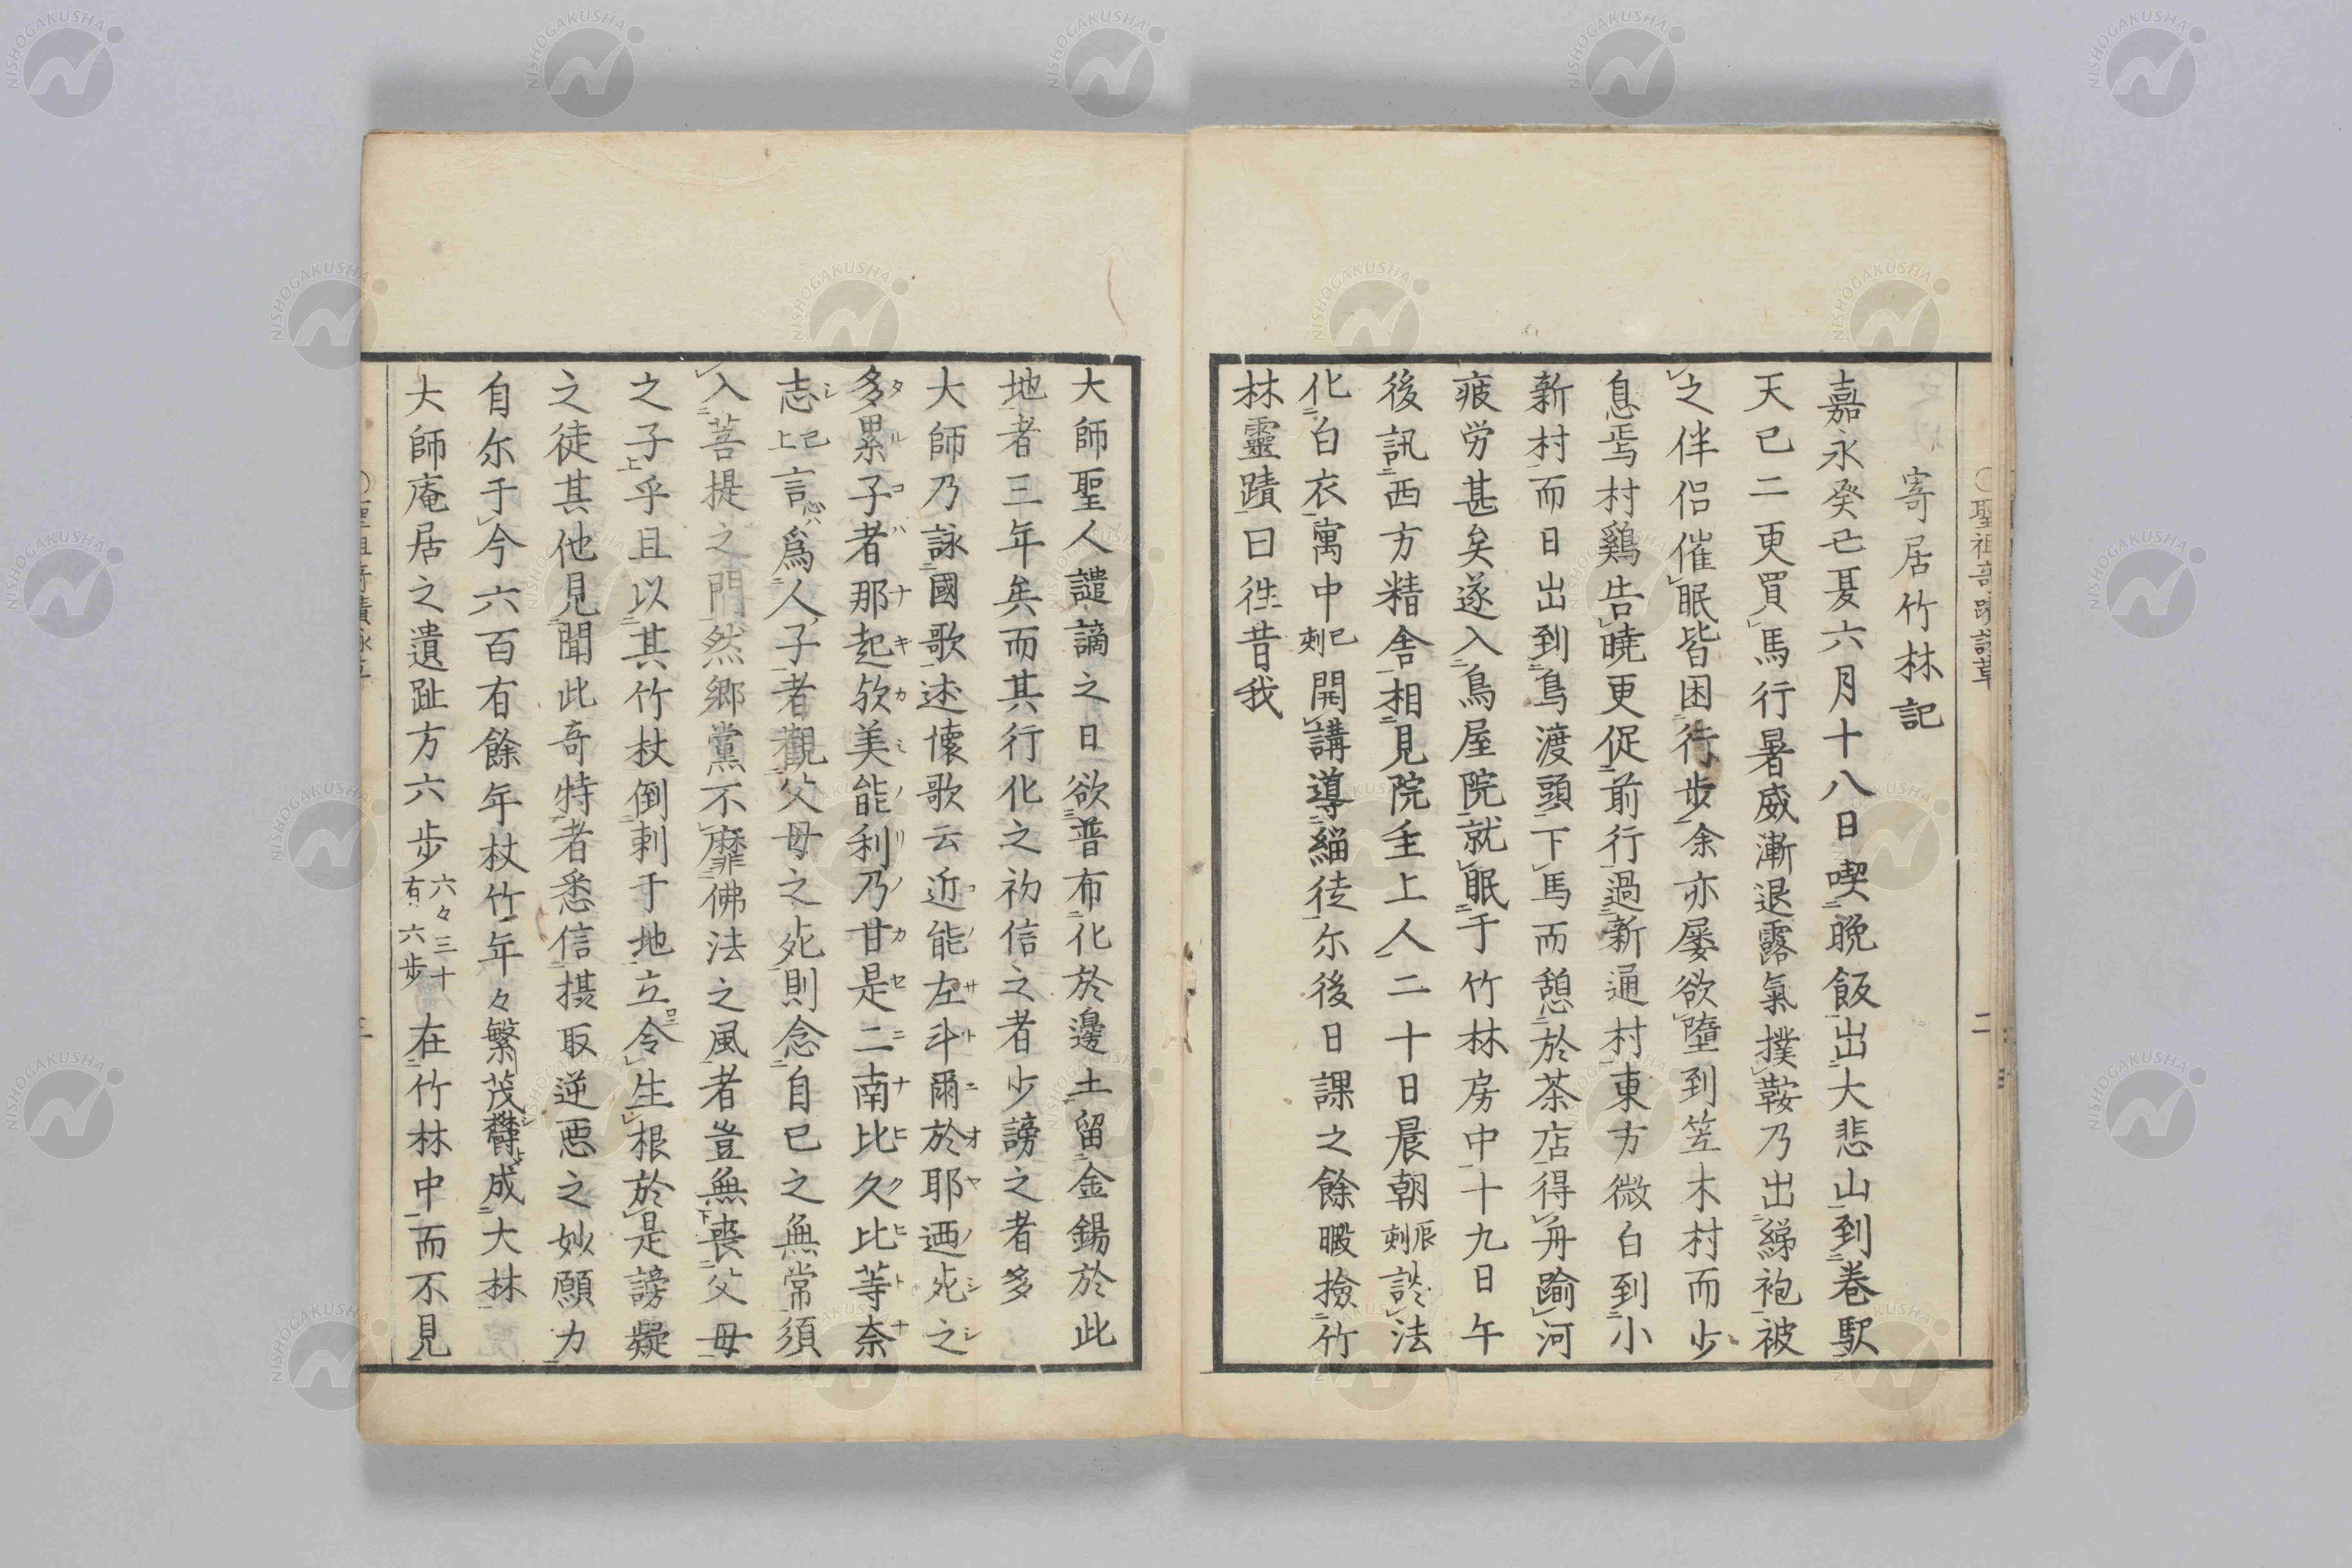 寄居竹林記
嘉永癸丑夏六月十八日喫晩飯出大悲山到巻駅
天已二更買馬行暑威漸退露氣撲鞍乃出綈袍被
之伴侶催眠皆困行歩余亦屡欲墮到笠木村而少
息焉村鷄告曉更促前行過新通村東方微白到小
新村而日出到鳥渡頭下馬而憩於茶店得舟踰河
疲労甚矣遂入鳥屋院就眠于竹林房中十九日午
後訊西方精舎相見院主上人二十日晨朝辰刻談法
化白衣寓中巳刻開講導緇徒尓後日課之餘暇撿竹
林靈蹟曰徃昔我
大師聖人譴謫之日欲普布化於邊土留金錫於此
地者三年矣而其行化之初信之者少謗之者多
大師乃詠國歌述懐歌云近能左斗爾於耶迺死之
多累子者那起欤美能利乃甘是二南比久比等奈
志已上言心ハ為人子者觀父母之死則念自已之無常須
入菩提之門然郷黨不靡佛法之風者豈無喪父母
之子乎且以其竹杖倒刺于地立令生根於是謗疑
之徒其他見聞此奇特者悉信摂取逆悪之妙願力
自尓于今六百有餘年杖竹年々繁茂欝成大林
大師庵居之遺趾方六歩六々三十有六歩在竹林中而不見